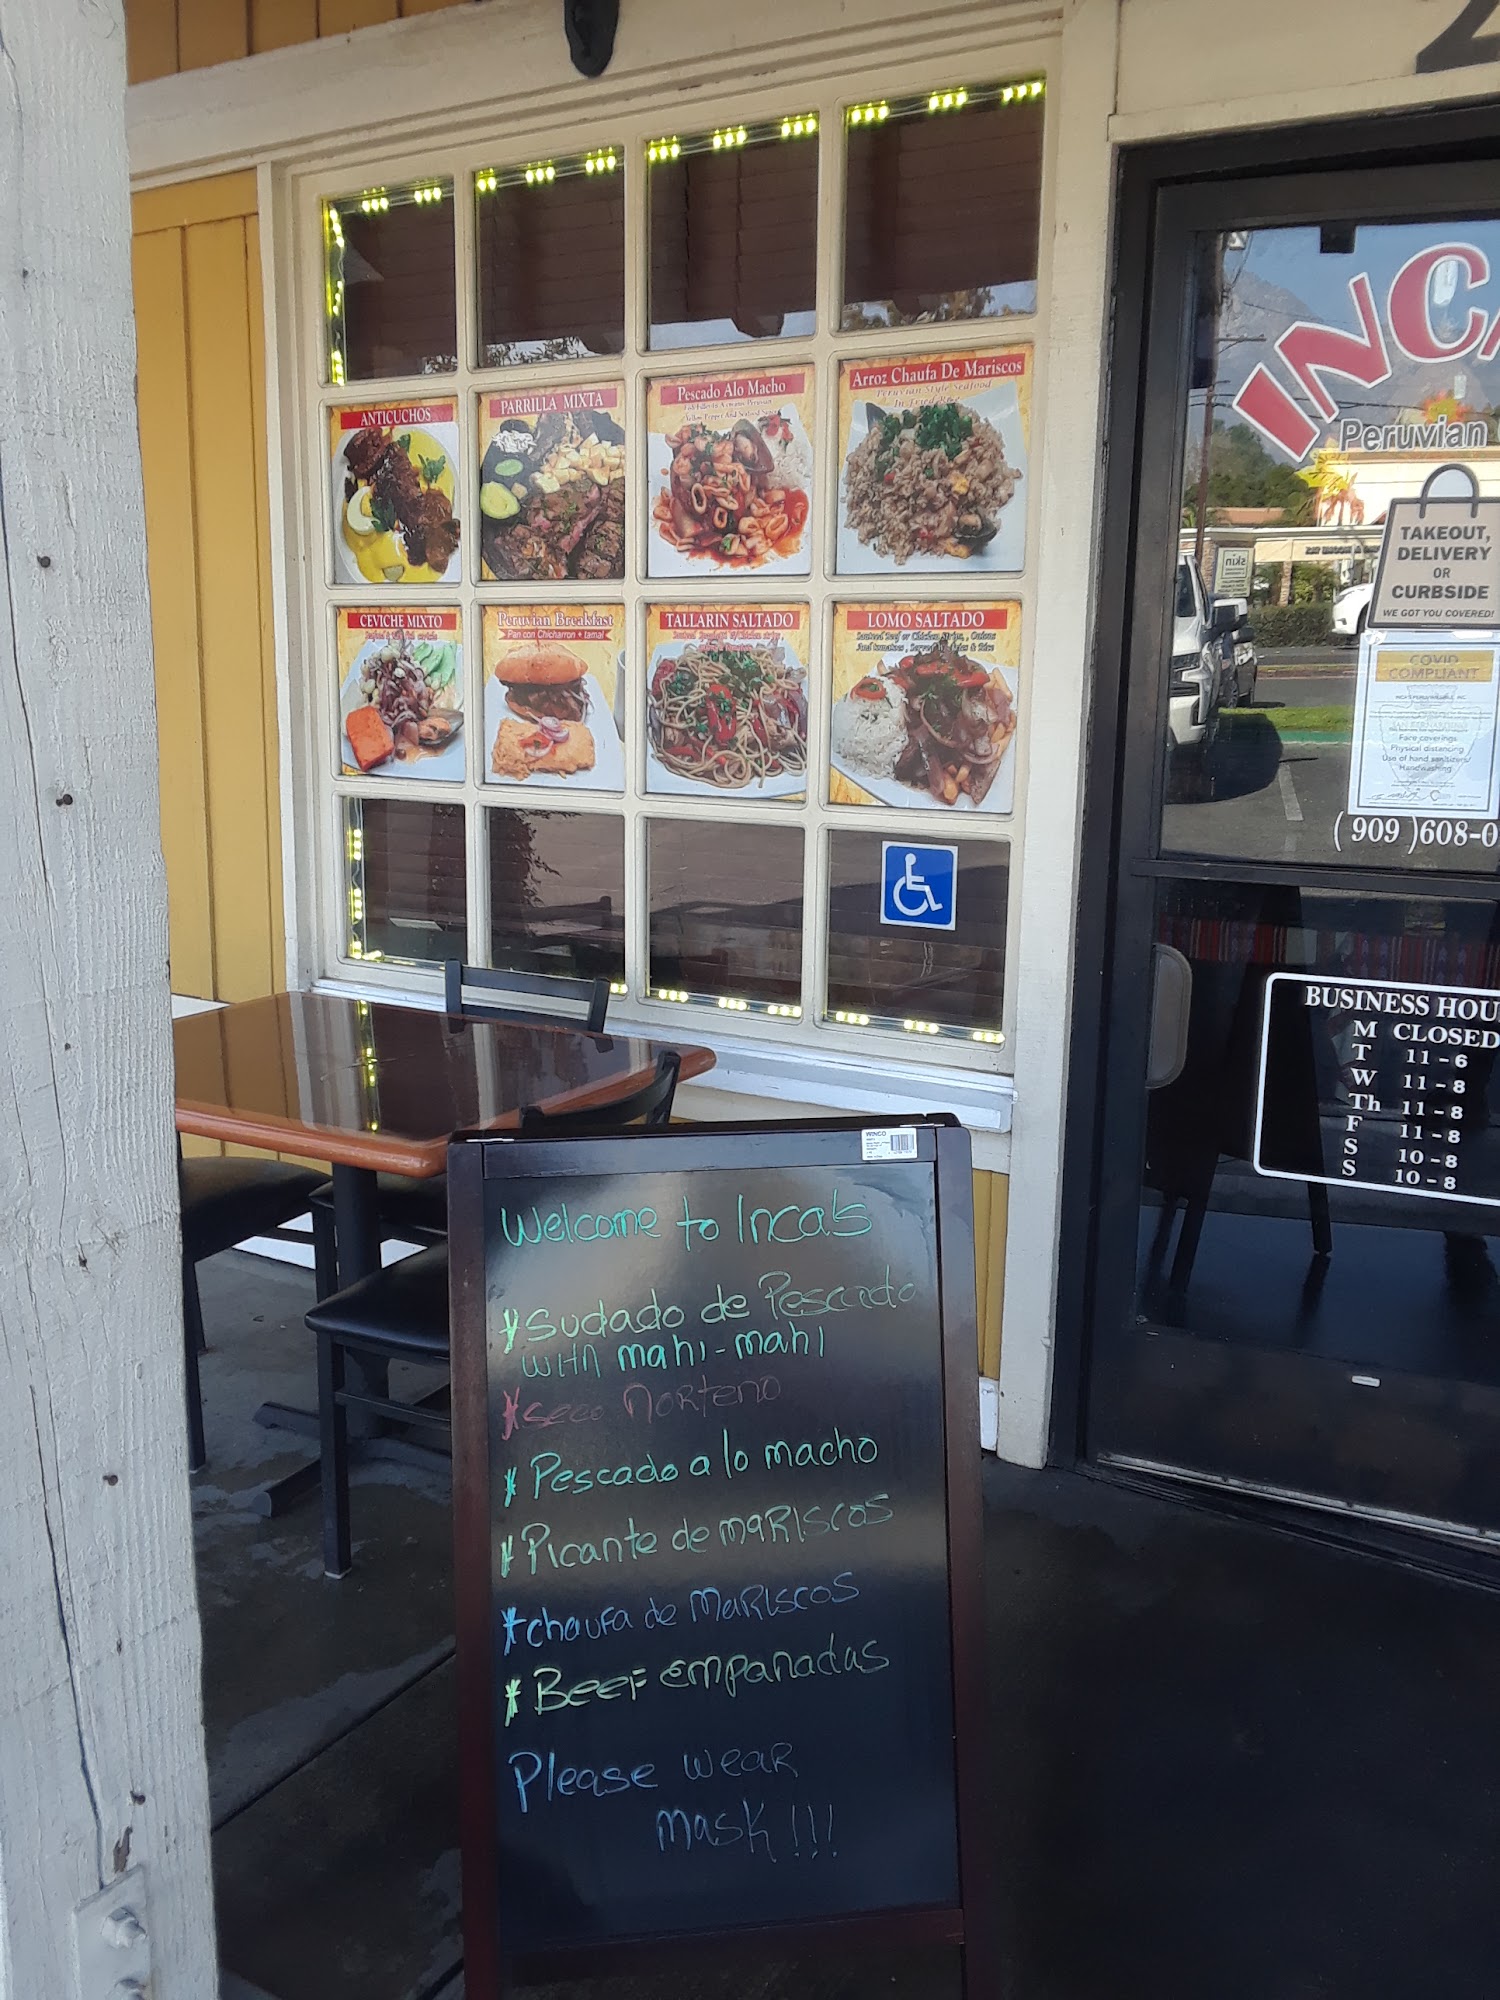 ANTICUCHOS
PARRILLA MIXTA
Pescado Alo Macho
Arroz Chaufa De Mariscos
Peruvian Style Seafood
In Fried Rice
CEVICHE MIXTO
Peruvian Breakfast
Pan con Chicharron + tamal
TALLARIN SALTADO
LOMO SALTADO
Sauteed Beef or Chicken Strips, Onions
INCA
Peruvian
TAKEOUT,
DELIVERY
OR
CURBSIDE
WE GOT YOU COVERED!
COVID
COMPLIANT
Face coverings
Physical distancing
Use of hand sanitizers/
Handwashing
(909)608-0
BUSINESS HOU
M CLOSED
T 11-6
W 11-8
Th 11-8
F 11-8
S 10-8
S 10-8
WINCO
Welcome to Inca's
*Sudado de Pescado
with mahi-mahi
*seco Norteno
*Pescado a lo macho
*Picante de mariscos
*chaufa de mariscos
*Beef empanadas
Please wear
mask!!!